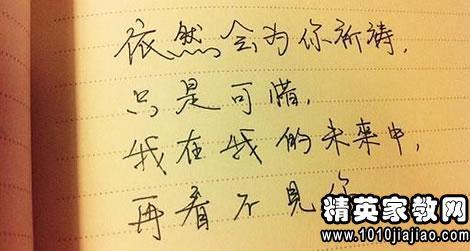 依然会为你祈祷,
只是可惜,
我在我的未来中,
再看不见你
精英家教网
www.1010jiajiao.com